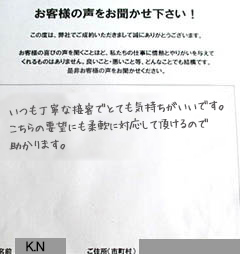 お客様の声をお聞かせ下さい！
この度は、弊社でご成約いただきまして誠にありがとうございます。
お客様の喜びの声を聞くことほど、私たちの仕事に情熱とやりがいを与えて
くれるものはありません。良いこと・悪いこと等、どんなことでも結構です。
是非お客様の声をお聞かせください。
いつも丁寧な接客でとても気持ちがいいです。
こちらの要望にも柔軟に対応して頂けるので
助かります。
名前 K.N ご住所(市町村)